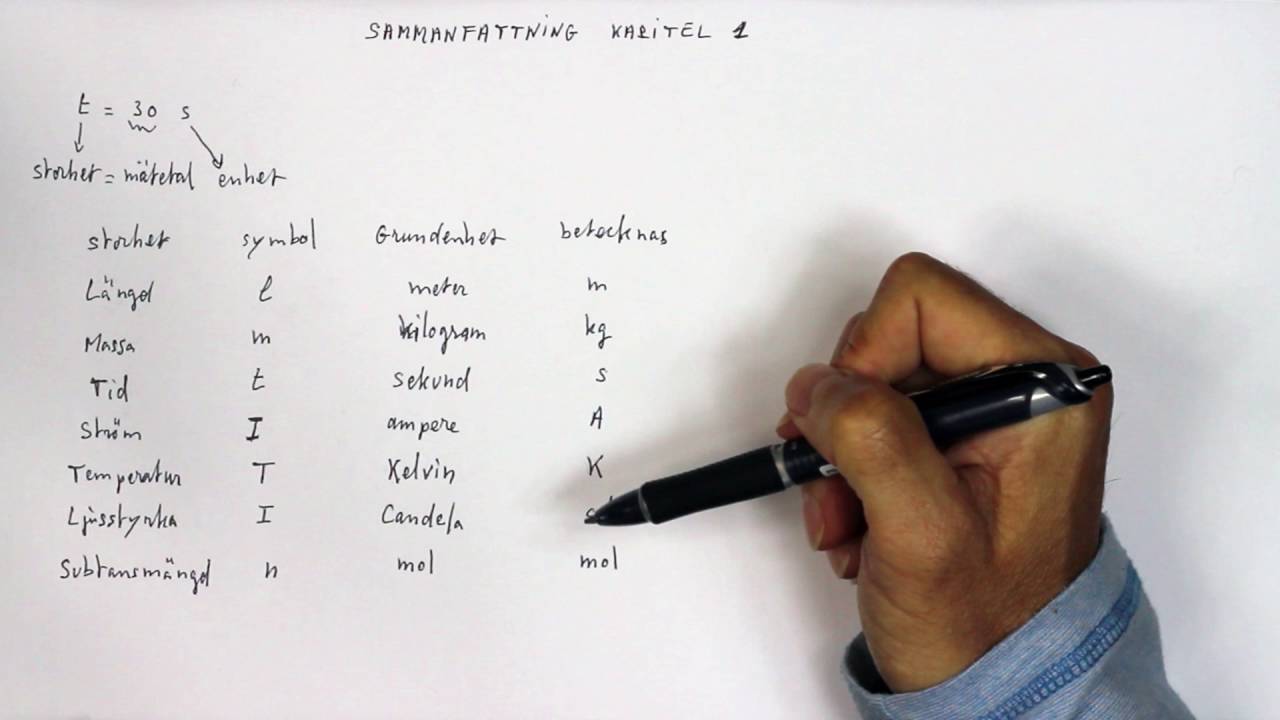 SAMMANFATTNING KAPITEL 1
t = 30 s
storhet = mätetal enhet
storhet symbol Grundenhet betecknas
Längd l meter m
Massa m kilogram kg
Tid t sekund s
Ström I ampere A
Temperatur T Kelvin K
Ljusstyrka I Candela
Subtansmängd n mol mol